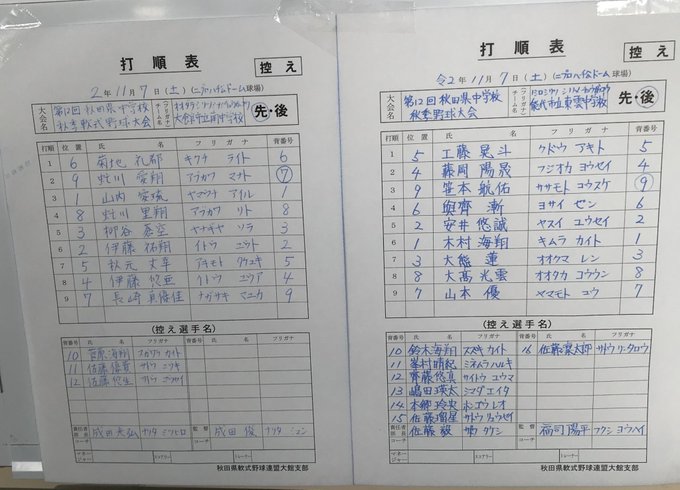 打順表
控え
2年11月7日(土)(ニプロハチ公ドーム球場)
大会名
第12回秋田県中学校
秋季軟式野球大会
フリガナ
チーム名
大館市立南中学校
先・後
打順 位置 氏 名 フリガナ 背番号
1 6 菊地 礼都 キクチ ライト 6
2 9 虻川 愛翔 アブカワ マナト 7
3 1 山内 愛琉 ヤマウチ アイル 1
4 8 虻川 里翔 アブカワ リト 8
5 3 柳谷 蒼空 ヤナギヤ ソラ 3
6 2 伊藤 祐翔 イトウ ユウト 2
7 5 秋元 アキモト 5
8 4 伊藤 悠亜 イトウ ユウア 4
9 7 長崎 ナガサキ マユカ 9
(控え選手名)
氏 名 フリガナ 背番号 氏 名 フリガナ
10 菅原 海翔 スガワラ カイト
11 佐藤 優貴 サトウ
12 佐藤 悠生 サトウ
責任者
部長
コーチ
成田 光弘 ナリタ ミツヒロ
監督
コーチ
成田 俊 ナリタ シュン
マネージャー スコアラー トレーナー
秋田県軟式野球連盟大館支部
打順表
控え
令2年11月7日(土)(ニプロハチ公ドーム球場)
大会名
第12回秋田県中学校
秋季野球大会
フリガナ
チーム名
能代市立東雲中学校
先・後
打順 位置 氏 名 フリガナ 背番号
1 5 工藤 晃斗 クドウ アキト 5
2 4 藤岡 陽晟 フジオカ ヨウセイ 4
3 9 笹本 航佑 ササモト コウスケ 9
4 6 與齊 漸 ヨサイ ゼン 6
5 2 安井 悠誠 ヤスイ ユウセイ 2
6 1 木村 海翔 キムラ カイト 1
7 3 大熊 蓮 オオクマ レン 3
8 8 大髙 光雲 オオタカ コウウン 8
9 7 山本 優 ヤマモト ユウ 7
(控え選手名)
背番号 氏 名 フリガナ 背番号 氏 名 フリガナ
10 鈴木 海翔 スズキ カイト 16 佐藤 凜太郎 サトウ リンタロウ
11 峯村 晴紀 ミネムラ ハルキ
12 齊藤 悠真 サイトウ ユウマ
13 嶋田 瑛太 シマダ エイタ
14 本郷 玲央 ホンゴウ レオ
15 佐藤 瑠星 サトウ リュウセイ
責任者
部長
コーチ
佐藤 毅 サトウ タケシ
監督
コーチ
福司 陽平 フクシ ヨウヘイ
マネージャー スコアラー トレーナー
秋田県軟式野球連盟大館支部